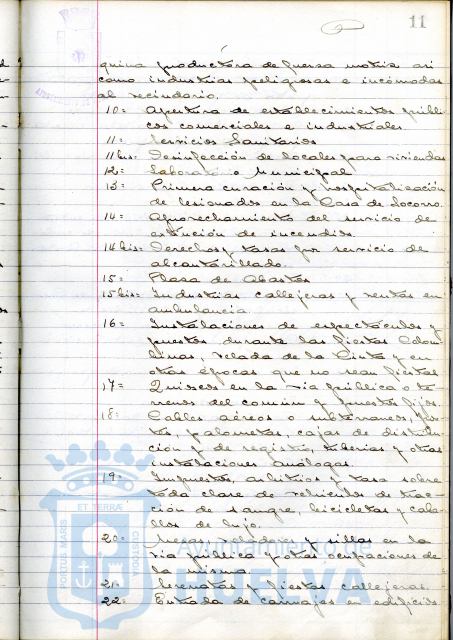 11
quina productora de fuerza motriz así
como industrias peligrosas e incómodas
al vecindario.
10= Apertura de establecimientos públi-
cos comerciales e industriales.
11= Servicios Sanitarios
11 bis= Desinfección de locales para viviendas
12= Laboratorio Municipal
13= Primera curación y hospitalización
de lesionados en la Casa de Socorro.
14= Aprovechamiento del servicio de
extinción de incendios.
14 bis= Derechos y tasas por servicio de
alcantarillado.
15= Plaza de Abastos
15 bis= Industrias callejeras y ventas en
ambulancia
16= Instalaciones de espectáculos y
puestos durante las fiestas Colom-
binas, velada de la Cinta y en
otras épocas que no sean fiestas
17= Quioscos en la vía pública o te-
rrenos del común y puestos fijos
18= Cables aéreos o subterráneos, pos-
tes, palometas, cajas de distribu-
ción y de registro, tuberías y otras
instalaciones análogas.
19= Impuestos, arbitrios y tasa sobre
toda clase de vehículos de trac-
ción de sangre, bicicletas y caba-
llos de lujo.
20= Mesas veladores y sillas en la
vía pública y otras ocupaciones de
la misma.
21= Serenatas y fiestas callejeras.
22= Entrada de carruajes en edificios
PORTUS MARIS
ET TERRAE
CUSTODIA
Ayuntamiento de
HUELVA